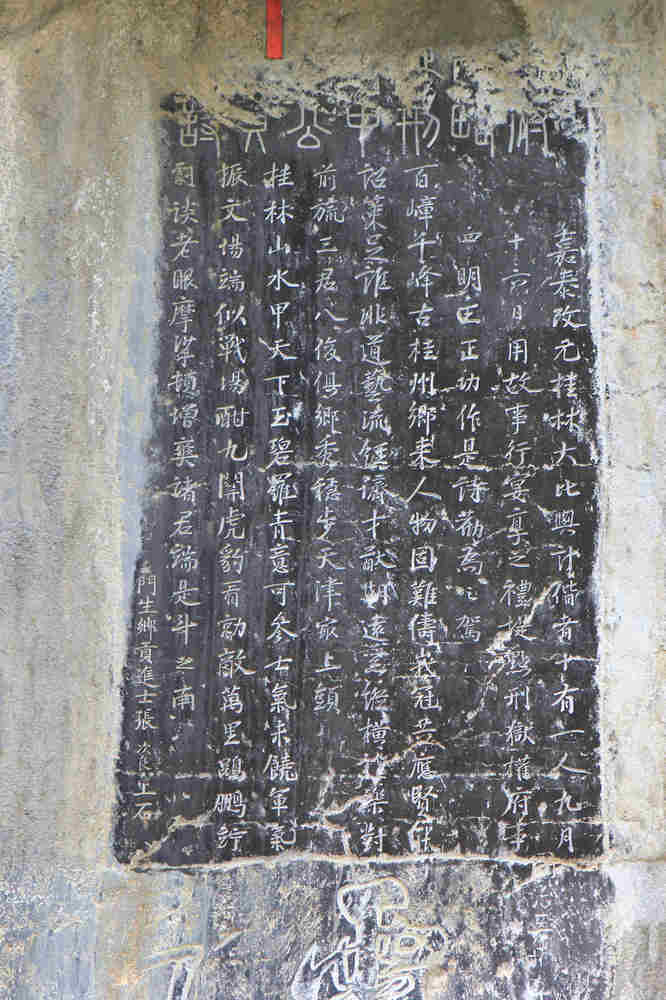 嘉泰改元桂林大比與計偕者十有一人九月
十六日用故事行宴享之禮提點刑獄權府事
四明王正功作是詩勸爲之駕
百嶂千峰古桂州鄉來人物固難儔峩冠共應賢能
詔策足誰非道藝流經濟才猷期遠器縱橫禮樂對
前旒三君八俊俱鄉秀穩步天津最上頭
桂林山水甲天下玉碧羅青意可參士氣未饒軍氣
振文場端似戰場酣九關虎豹看勍敵萬里鵾鵬佇
劇談老眼摩挲頓增爽諸君端是斗之南
門生鄉貢進士張次良上石